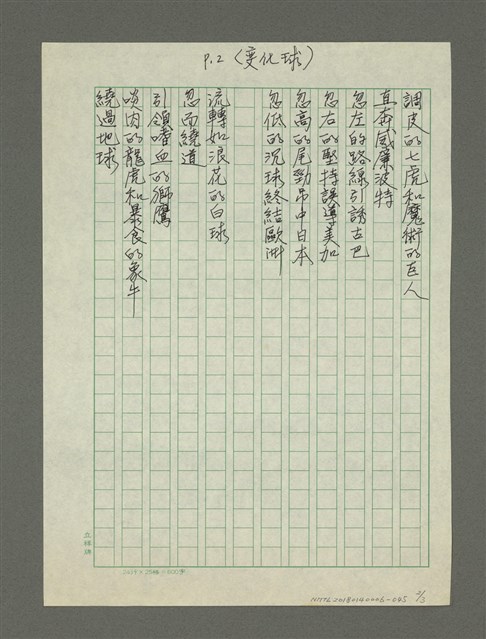 P.2（变化球）
調皮的七虎和魔術的巨人
直奔威廉波特
忽左的路線引誘古巴
忽右的堅持誤導美加
忽高的尾勁吊中日本
忽低的沉球終結歐洲
流轉如浪花的白球
忽而繞道
引領嗜血的獅鷹
啖肉的龍虎和暴食的象牛
繞過地球
24行×25格=600字
NMTL20180140006-045 2/3